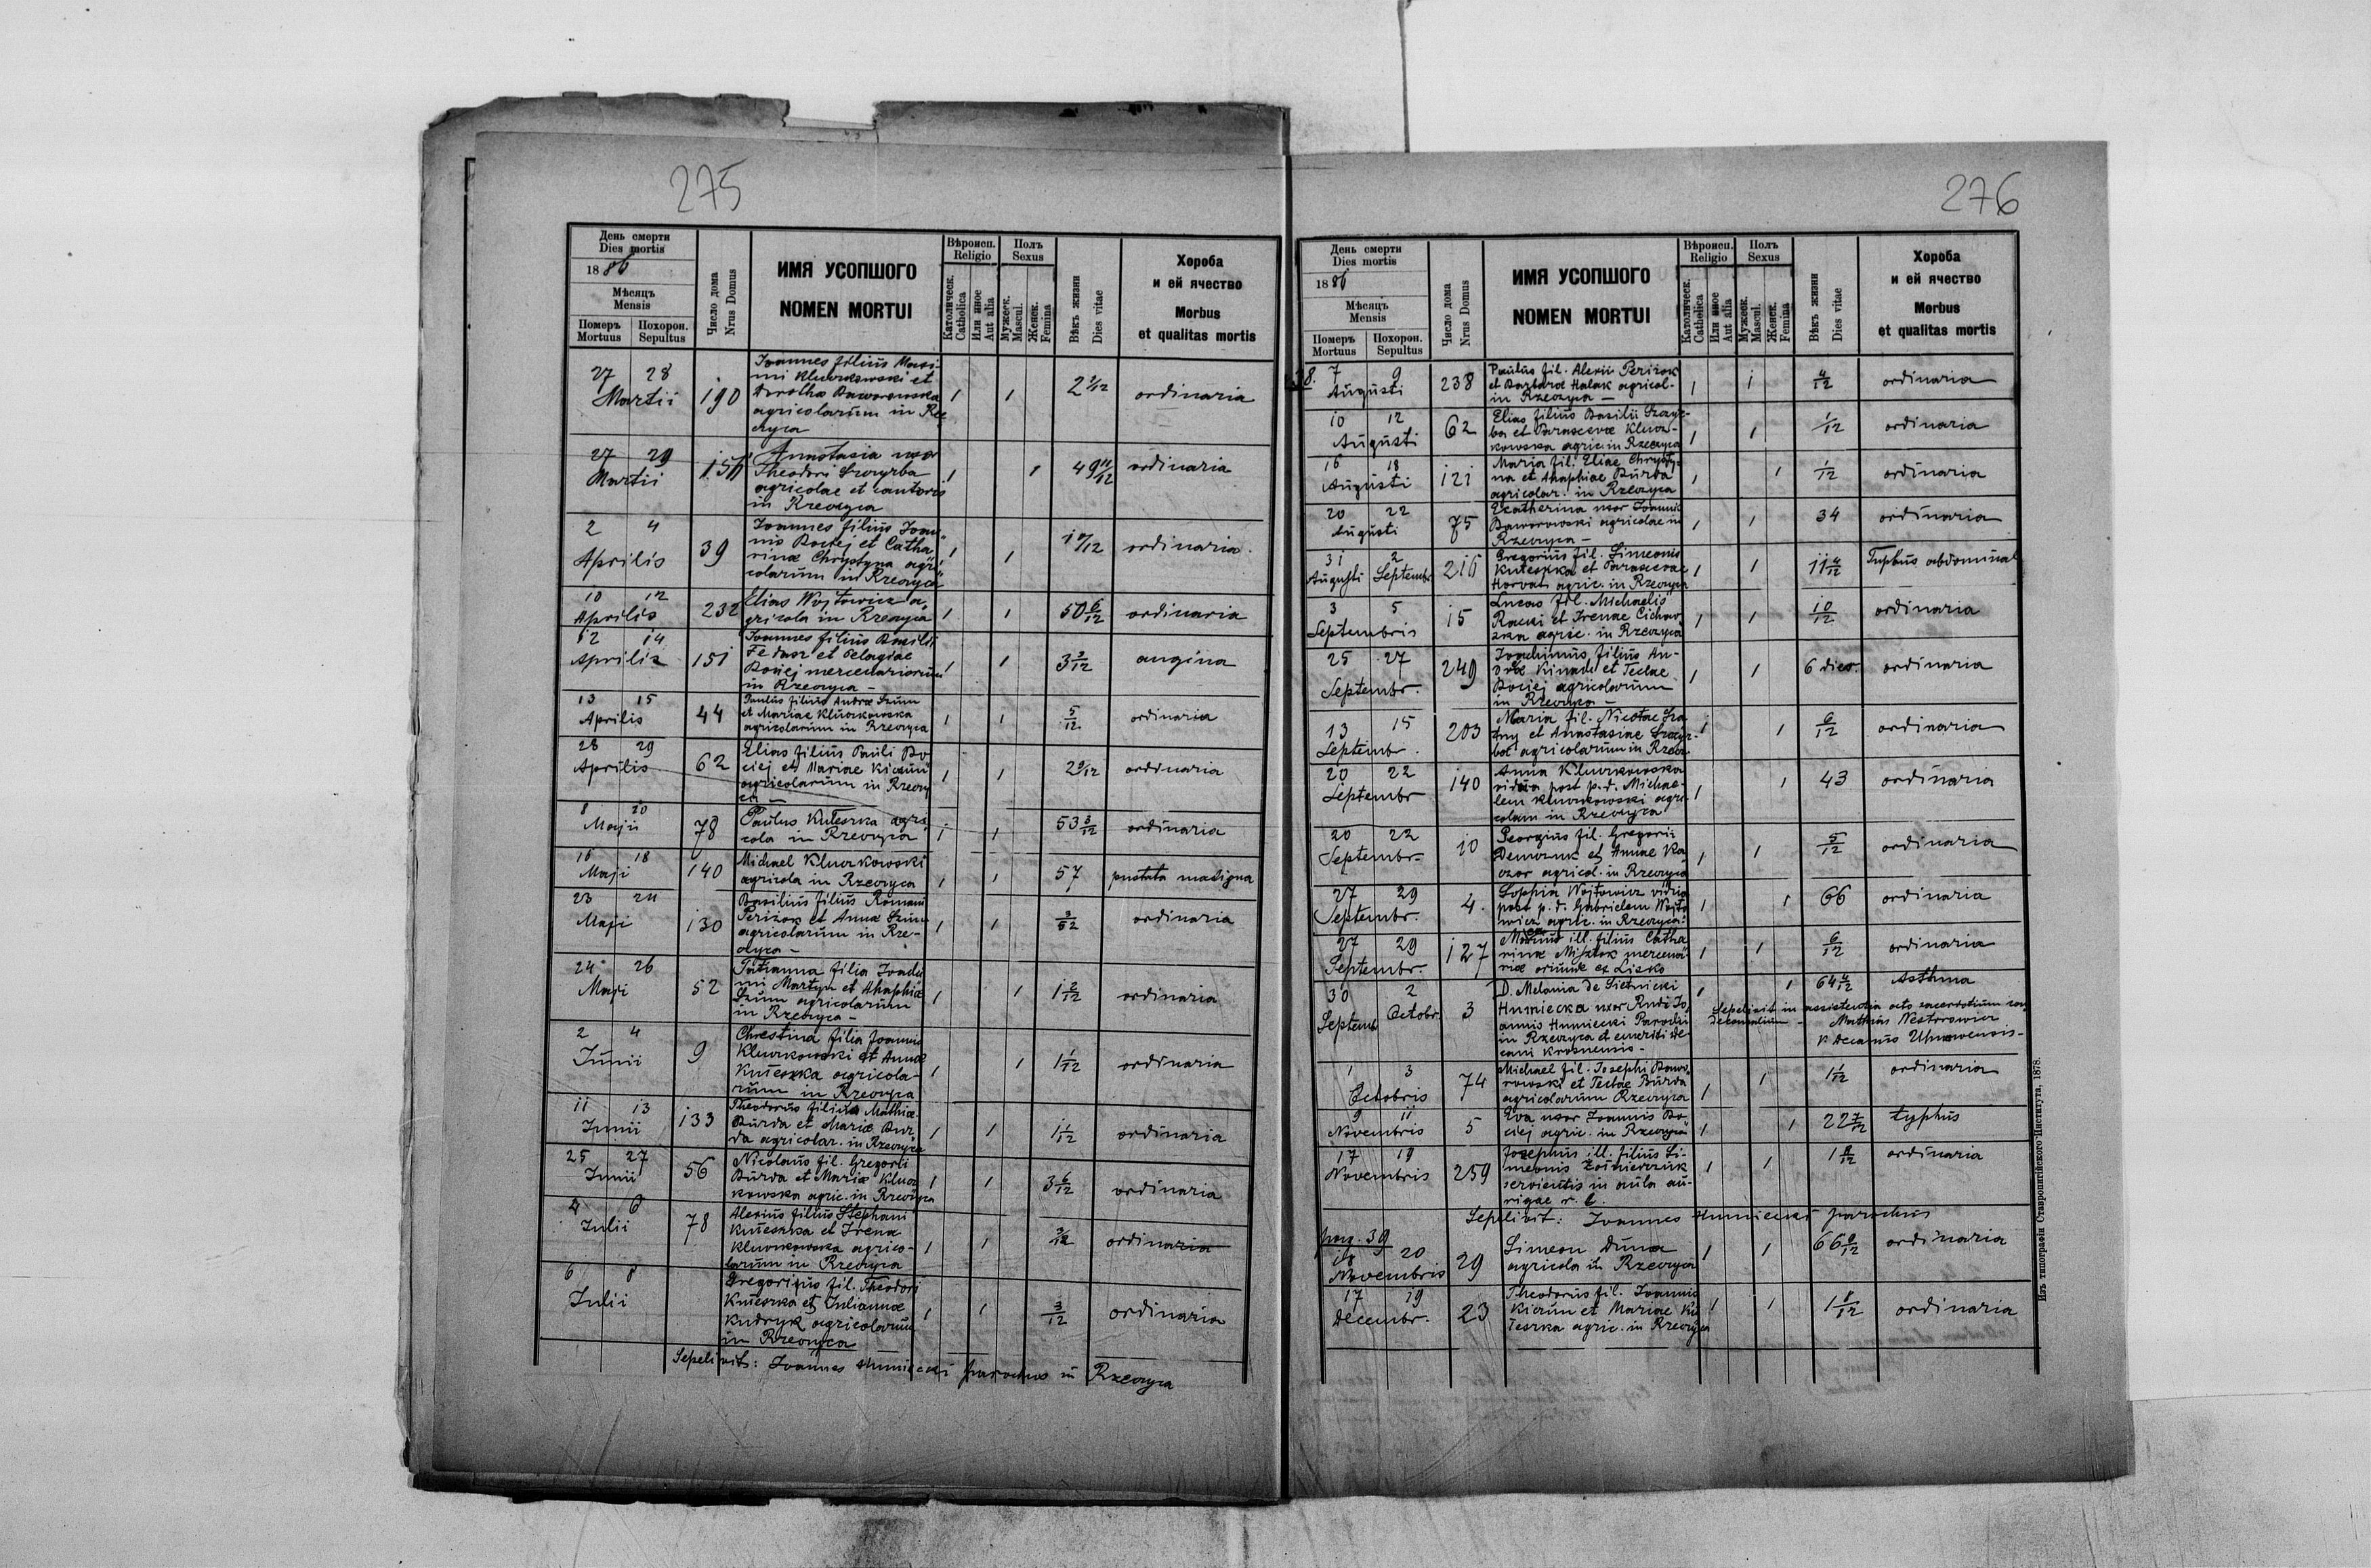 275
День смерти
Dies mortis
1886
Мѣсяцъ
Mensis
Померъ Похорон.
Mortuus Sepultus
Число дома
Nrus Domus
ИМЯ УСОПШОГО
NOMEN MORTUI
Вѣроисп.
Religio
Католическ.
Catholica
Или иное
Aut alia
Полъ
Sexus
Мужеск.
Mascul.
Женск.
Femina
Вѣкъ жизни
Dies vitae
Хороба
и ей ячество
Morbus
et qualitas mortis
27 28 Martii 190 Joannes filius Maxi-
mi Kluczkowski et
Dorothea Baworowska
agricolarum in Rze
czyca 1 1 ordinaria
27 29 Martii Anastasia uxor
Theodori Szczyrba
agricolae et cantoris
in Rzeczyca 1 1 49 11/12 ordinaria
2 4 Aprilis 39 Joannes filius Joan-
nis Bociej et Catha
rinae Chrystyna agri
colarum in Rzeczyca 1 1 ordinaria
10 12 Aprilis 232 Elias Wojtowicz a-
gricola in Rzeczyca 1 1 50 6/12 ordinaria
12 14 Aprilis 151 Joannes filius Basilii
Fedasz et Pelagiae
Bociej mercenariorum
in Rzeczyca - 1 1 3 3/12 angina
13 15 Aprilis 44 Paulus filius Andreae Szum
et Mariae Kluczkowska
agricolarum in Rzeczyca 1 1 5/12 ordinaria
28 29 Aprilis 62 Elias filius Pauli Bo
ciej et Mariae Kiczun
agricolarum in Rzeczy
ca - 1 1 ordinaria
8 10 Maji 78 Paulus Kuteszka agri
cola in Rzeczyca 1 1 53 ordinaria
16 18 Maji 140 Michael Kluczkowski
agricola in Rzeczyca 1 1 57 pustata maligna
23 24 Maji 130 Basilius filius Romani
Perizok et Annae Szum
agricolarum in Rze-
czyca - 1 1 ordinaria
24 26 Maji 52 Tatianna filia Joachi
mi Martyn et Ahaphiae
Szum agricolarum
in Rzeczyca - 1 1 1 2/12 ordinaria
2 4 Junii 9 Chrestina filia Joannis
Kluczkowski et Annae
Kuteszka agricola-
rum in Rzeczyca 1 1 1 1/12 ordinaria
11 13 Junii 133 Theodorus filius Mathiae
Burda et Mariae Bur
da agricolar. in Rzeczyca 1 1 1 1/12 ordinaria
25 27 Junii 56 Nicolaus fil. Gregorii
Burda et Mariae Klucz
kowska agric. in Rzeczyca 1 1 3 6/12 ordinaria
4 6 Julii 78 Alexius filius Stephani
Kuteszka et Irena
Kluczkowska agrico-
larum in Rzeczyca 1 1 ordinaria
6 8 Julii Gregorius fil. Theodori
Kuteszka et Julianae
Kudryk agricolarum
in Rzeczyca 1 1 3/12 ordinaria
Sepelivit: Joannes Humiecki parochus in Rzeczyca
276
День смерти
Dies mortis
1886
Мѣсяцъ
Mensis
Померъ Похорон.
Mortuus Sepultus
Число дома
Nrus Domus
ИМЯ УСОПШОГО
NOMEN MORTUI
Вѣроисп.
Religio
Католическ.
Catholica
Или иное
Aut alia
Полъ
Sexus
Мужеск.
Mascul.
Женск.
Femina
Вѣкъ жизни
Dies vitae
Хороба
и ей ячество
Morbus
et qualitas mortis
38. 7 9 Augusti 238 Paulus fil. Alexii Perizok
et Barbarae Halak agricol-
in Rzeczyca - 1 1 4/12 ordinaria
10 12 Augusti 62 Elias filius Basilii Szczyr-
ba et Parascevae Klucz-
kowska agric. in Rzeczyca 1 1 1/12 ordinaria
16 18 Augusti 121 Maria fil. Eliae Chrysty-
na et Ahaphiae Burda
agricolar. in Rzeczyca 1 1 1/12 ordinaria
20 22 Augusti 75 Ecatherina uxor Joannis
Baworowski agricolae in
Rzeczyca - 1 1 34 ordinaria
31 2 Augusti Septembr. 216 Gregorius fil. Simeonis
Kuteszka et Parascevae
Horvat agric. in Rzeczyca 1 1 11 4/12 Typhus abdominal
3 5 Septembris 15 Lucas fil. Michaelis
Racki et Irenae Cichow-
ska agric. in Rzeczyca 1 1 10/12 ordinaria
25 27 Septembr. 249 Joachimus filius An-
dreae Kinach et Teclae
Bociej agricolarum
in Rzeczyca - 1 1 6 dier. ordinaria
13 15 Septembr. 203 Maria fil. Nicolae
et Anastasiae Szczyr-
ba agricolarum in Rzecz. 1 1 6/12 ordinaria
20 22 Septembr 140 Anna Kluczkowska
vidua post p. d. Michae-
lem Kluczkowski agri-
colam in Rzeczyca 1 1 43 ordinaria
20 22 Septembr. 10 Georgius fil. Gregorii
Demczuk et Annae Ka
czor agricol. in Rzeczyca 1 1 5/12 ordinaria
27 29 Septembr. 4. Sophia Wojtowicz vidua
post p. d. Gabrielem Wojto
wicz agric. in Rzeczyca. 1 1 66 ordinaria
27 29 Septembr. 127 ill. filius Catha
rinae Misztok mercena
riae oriundae ex Lisko 1 1 6/12 ordinaria
30 2 Septemb. Octobr. 3 D. Melania de Sietnicki
Humiecka uxor Rndi Jo
annis Humiecki Parochi
in Rzeczyca et emeriti De
cani Krosnensis - 1 1 64 4/12 Asthma
Sepelivit in assistentia octo sacerdotum con
decanalium - Mathias Nestorowicz
V Decanus Uhnowensis -
1 3 Octobris 74 Michael fil. Josephi Bawo
rowski et Teclae Burda
agricolarum Rzeczyca 1 1 1 1/12 ordinaria
9 11 Novembris 5 Eva uxor Joannis Bo
ciej agric. in Rzeczyca 1 1 22 7/12 typhus
17 19 Novembris 259 Josephus ill. filius Si-
meonis Żołnierczuk
servientis in aula au-
rigae r. l. 1 1 1 8/12 ordinaria
Sepelivit: Joannes Humiecki parochus
pag. 39
18 20 Novembris 29 Simeon Duma
agricola in Rzeczyca 1 1 66 9/12 ordinaria
17 19 Decembr. 23 Theodorus fil. Joannis
Kiczun et Mariae Ku
teszka agric. in Rzeczyca 1 1 1 8/12 ordinaria
Изъ типографіи Ставропигійского Института, 1878.